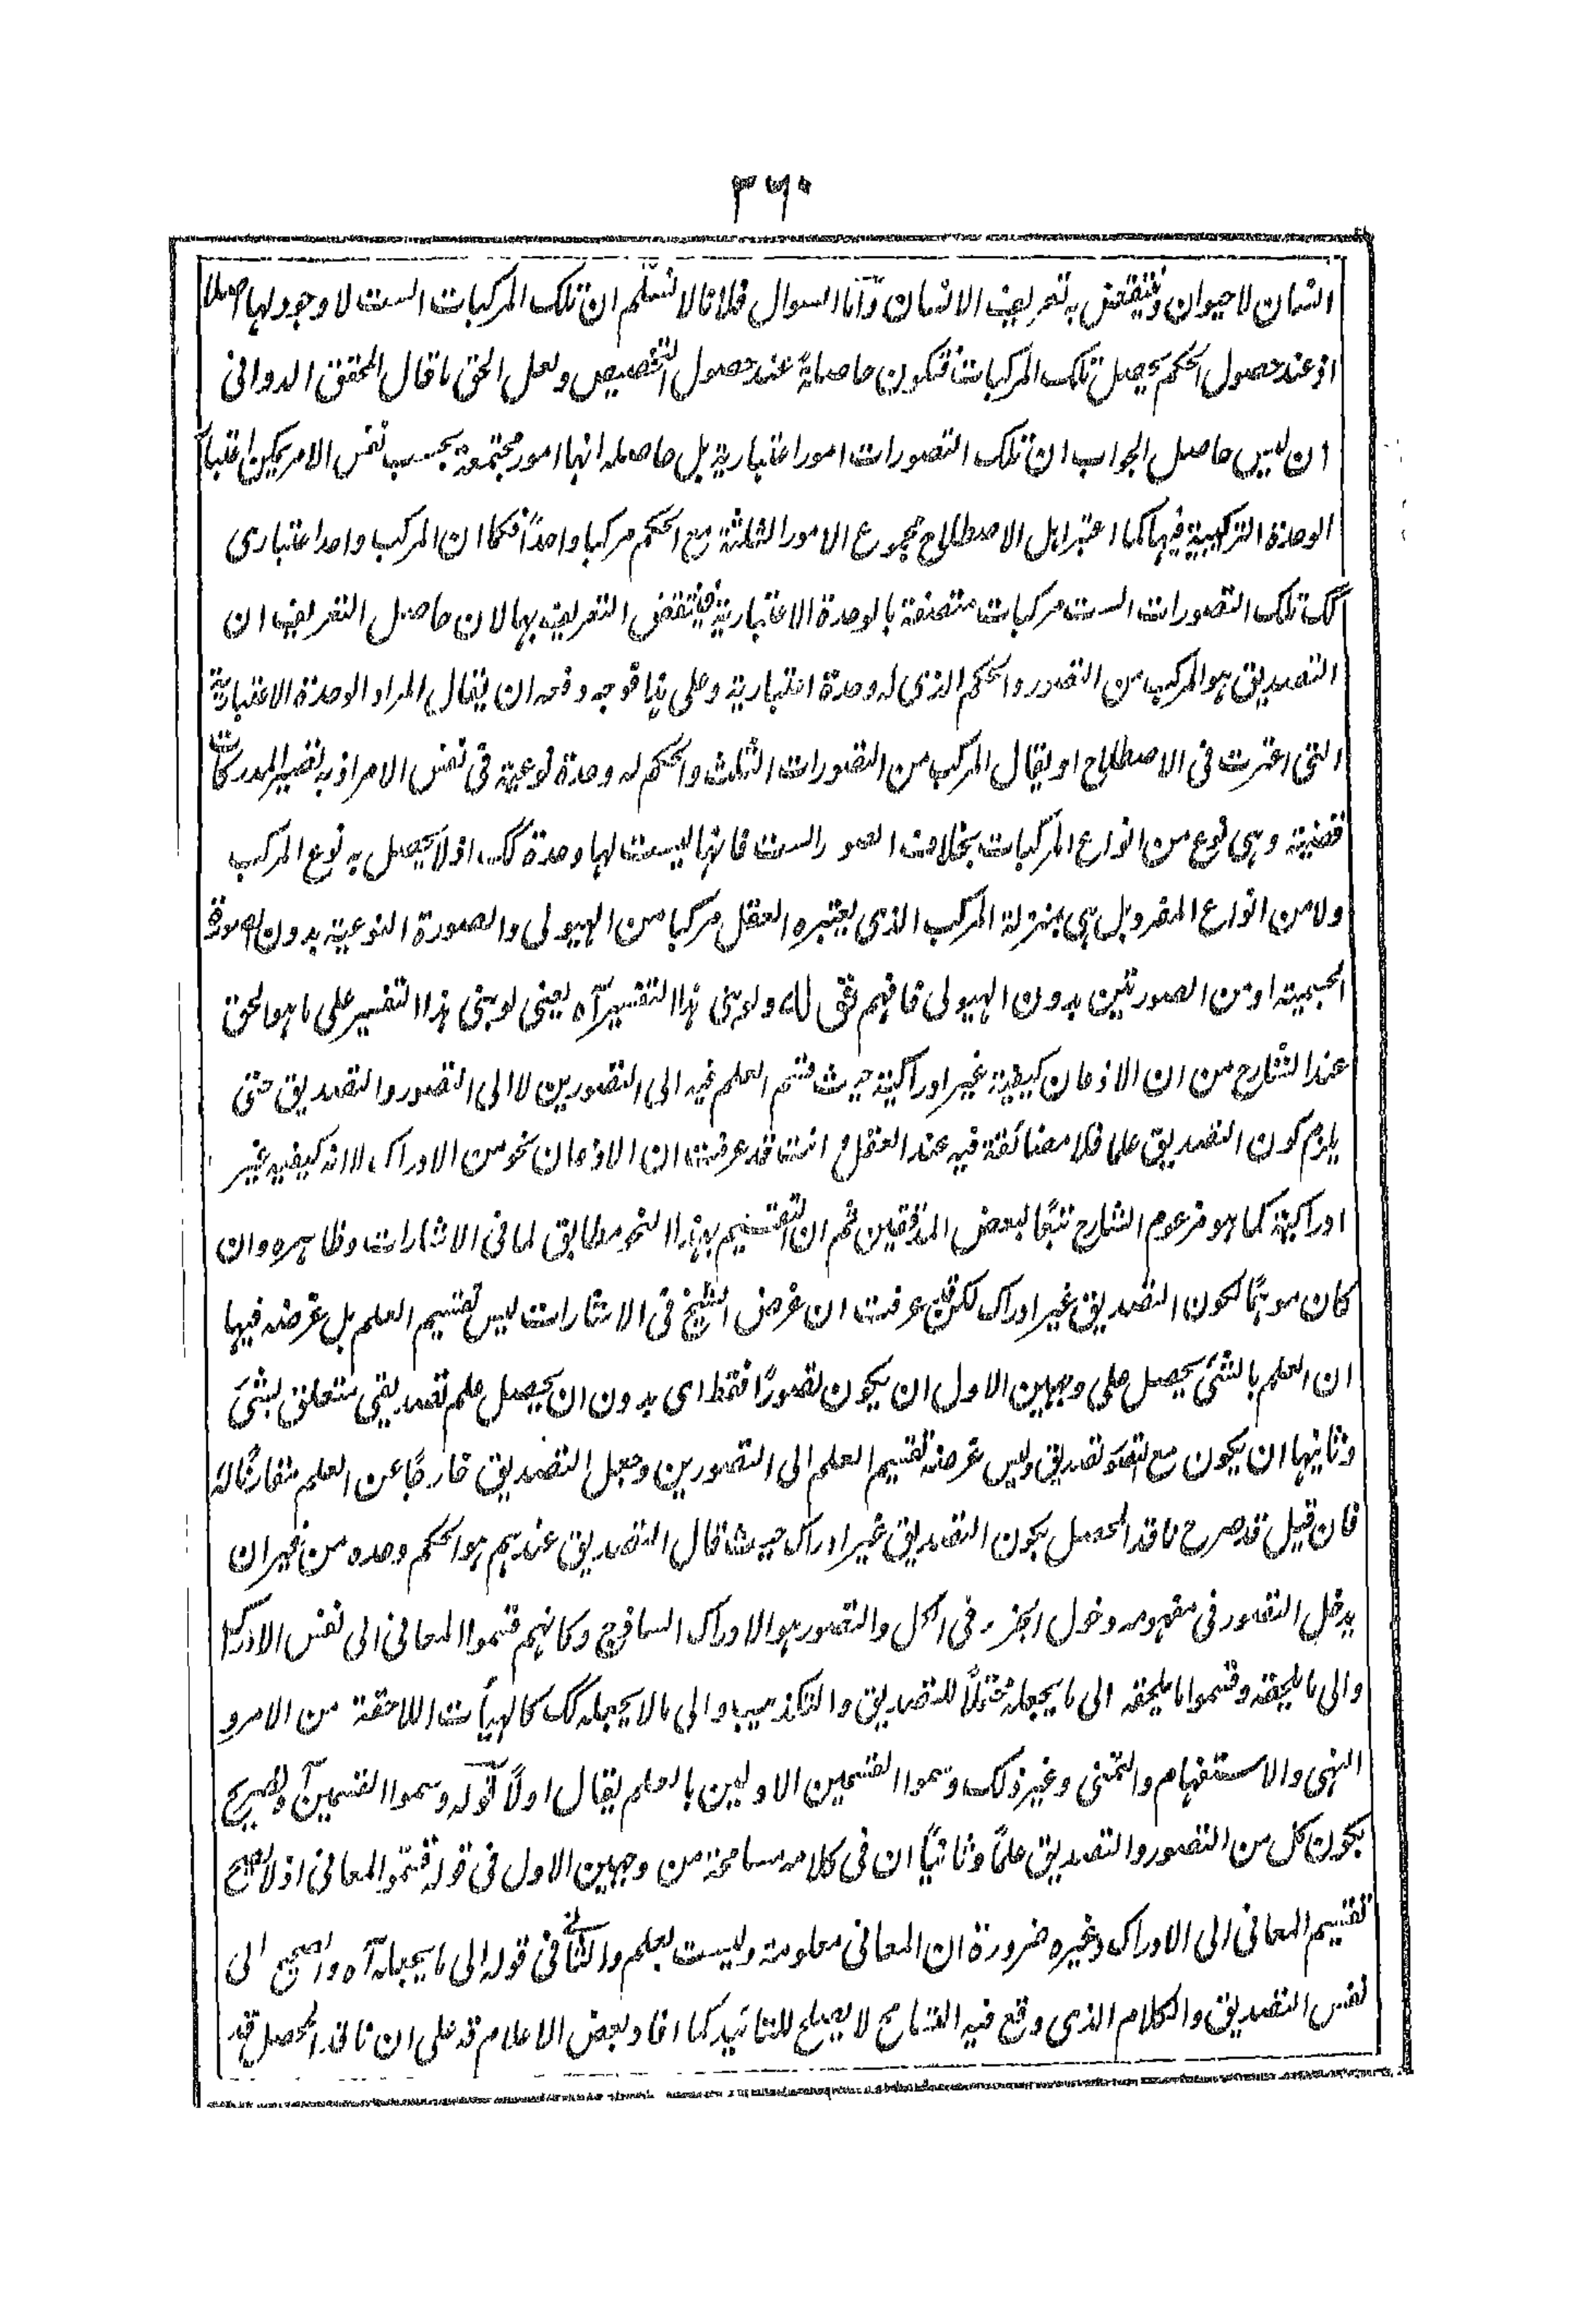 ٣٦٠
انسان لا حيوان فينتقض به تعريف الانسان واما السوال فلانا لا نسلم ان تلك المركبات الست لا وجود لها اصلا
اذ عند حصول الحكم يحصل تلك المركبات فتكون حاصلة عند حصول التخصيص ولعل الحق ما قال المحقق الدوانى
ان ليس حاصل الجواب ان تلك التصورات امور اعتبارية بل حاصله انها امور مجتمعة بحسب نفس الامر يمكن اعتبار
الوحدة التركيبية فيها كما اعتبر اهل الاصطلاح مجموع الامور الثلثة مع الحكم مركبا واحدًا فكما ان المركب واحد اعتبارى
كك تلك التصورات الست مركبات متصفة بالوحدة الاعتبارية فينتقض التعريف بها لان حاصل التعريف ان
التصديق هو المركب من التصور والحكم الذى له وحدة اعتبارية وعلى هذا فوجه دفعه ان يقال المراد الوحدة الاعتبارية
التى اعتبرت فى الاصطلاح او يقال المركب من التصورات الثلث والحكم له وحدة نوعية فى نفس الامر اذ به تصير المدركات
قضية وهى نوع من انواع المركبات بخلاف الصور الست فانها ليست لها وحدة كك اذ لا يحصل به نوع المركب
ولا من انواع المفرد بل هى بمنزلة المركب الذى يعتبره العقل مركبا من الهيولى والصورة النوعية بدون الصورة
الجسمية او من الصورتين بدون الهيولى فافهم قوله ولو بنى هذا التفسير آه يعنى لو بنى هذا التفسير على ما هو الحق
عند الشارح من ان الاذعان كيفية غير ادراكية حيث قسم العلم فيه الى التصورين لا الى التصور والتصديق حتى
يلزم كون التصديق علما فلا مضائقة فيه عند العقل و انت قد عرفت ان الاذعان نحو من الادراك لا انه كيفية غير
ادراكية كما هو مزعوم الشارح تبعًا لبعض المدققين ثم ان التقسيم بهذا النحو مطابق لما فى الاشارات وظاهره وان
كان موهمًا لكون التصديق غير ادراك لكن قد عرفت ان غرض الشيخ فى الاشارات ليس تقسيم العلم بل غرضه فيها
ان العلم بالشئ يحصل على وجهين الاول ان يكون تصورًا فقط اى بدون ان يحصل علم تصديقى متعلق بشئ
وثانيها ان يكون مع التصور تصديق وليس غرضه تقسيم العلم الى التصورين وجعل التصديق خارجًا عن العلم مقارنًا له
فان قيل قد صرح ناقد المحصل بكون التصديق غير ادراك حيث قال التصديق عندهم هو الحكم وحده من غير ان
يدخل التصور فى مفهومه دخول الجزء فى الكل والتصور هو الادراك الساذج وكانهم قسموا المعانى الى نفس الادراك
والى ما يلحقه وقسموا ما يلحقه الى ما يجعله محتملًا للتصديق والتكذيب والى ما لا يجعله كك كالهيأت اللاحقة من الامر و
النهى والاستفهام والتمنى وغير ذلك وسموا القسمين الاولين بالعلم يقال اولًا قوله وسموا القسمين آه صريح
بكون كل من التصور والتصديق علمًا وثانيًا ان فى كلامه مسامحة من وجهين الاول فى قوله قسموا المعانى اذ لا يصح
تقسيم المعانى الى الادراك وغيره ضرورة ان المعانى معلومة وليست بعلم والثانى فى قوله الى ما يجعله آه والصحيح الى
نفس التصديق والكلام الذى وقع فيه التسامح لا يصلح للتائيد كما افاد بعض الاعلام قد على ان ناقد المحصل قد